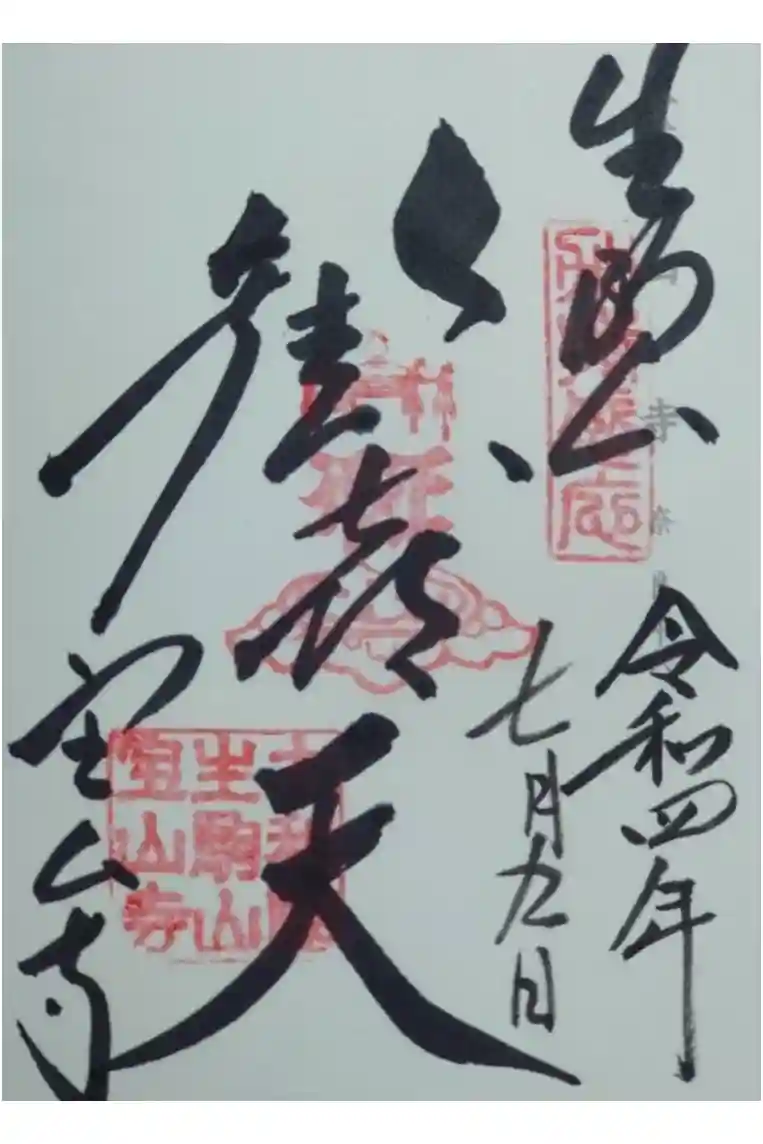 生駒山
令和四年
七月九日
歓喜天
宝山寺
生駒山
宝山寺
寺